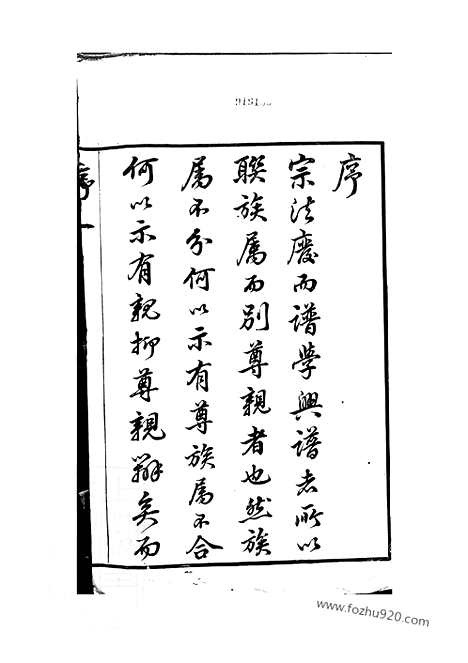 序
宗法廢而譜學興譜者所以
聯族属而别尊親者也然族
属不分何以示有尊族属不合
何以示有親抑尊親辨矣而
序 一
www.fozhu920.com